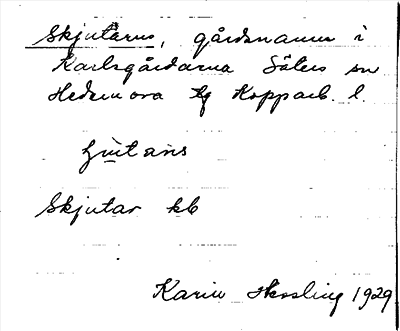 Skjutarns, gårdsnamn i
Karlsgårdarna Säters sn
Hedemora tg Kopparb. l.
Skjutar kb
Karin Hessling 1929